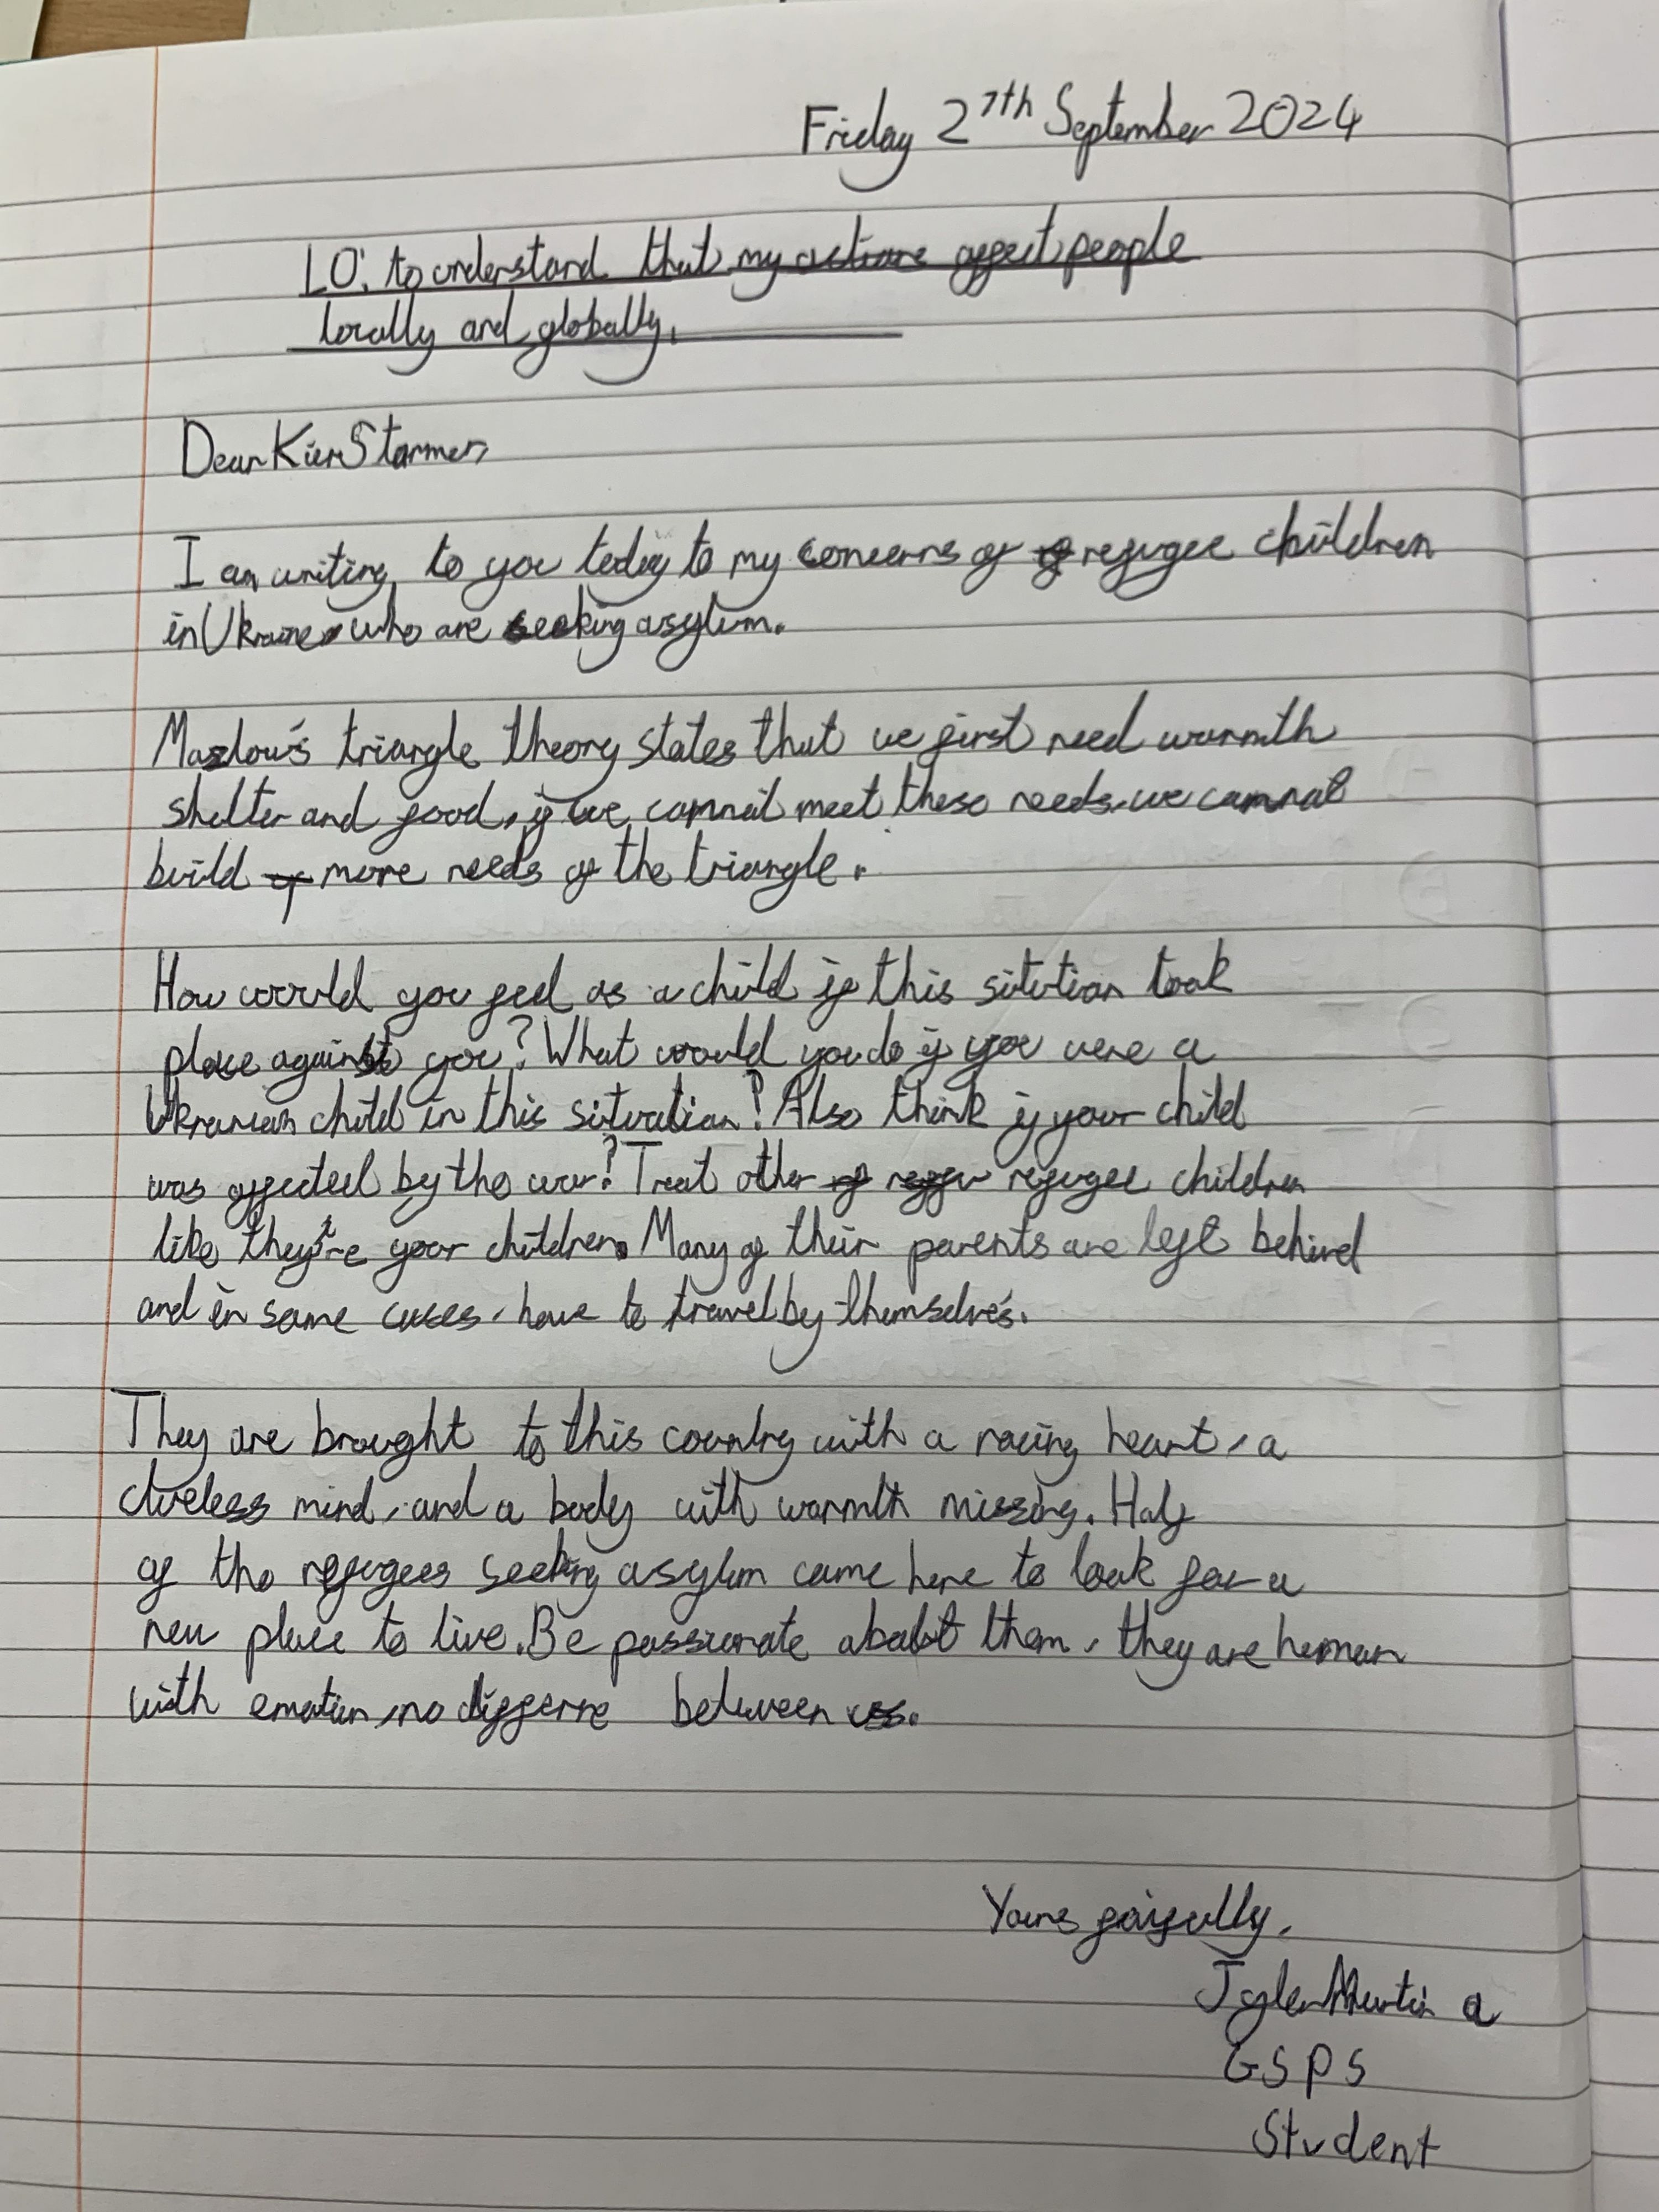 Friday 27th September 2024
LO: to understand that my actions affect people
locally and globally.
Dear Kier Starmer,
I am writing to you today to my concerns of refugee children
in Ukraine who are seeking asylum.
Mazlow's triangle theory states that we first need warmth
shelter and food, if we cannot meet these needs, we cannot
build more needs of the triangle.
How would you feel as a child if this sitution took
place against you? What would you do if you were a
Ukranian child in this situation? Also think if your child
was affected by the war? Treat other refugee children
like they're your children. Many of their parents are left behind
and in some cases, have to travel by themselve's.
They are brought to this country with a racing heart, a
clueless mind, and a body with warmth missing. Half
of the refugees seeking asylum came here to look for a
new place to live. Be passionate about them, they are human
with emotion, no differre between us.
Yours faifully,
Martin a
GSPS
Student